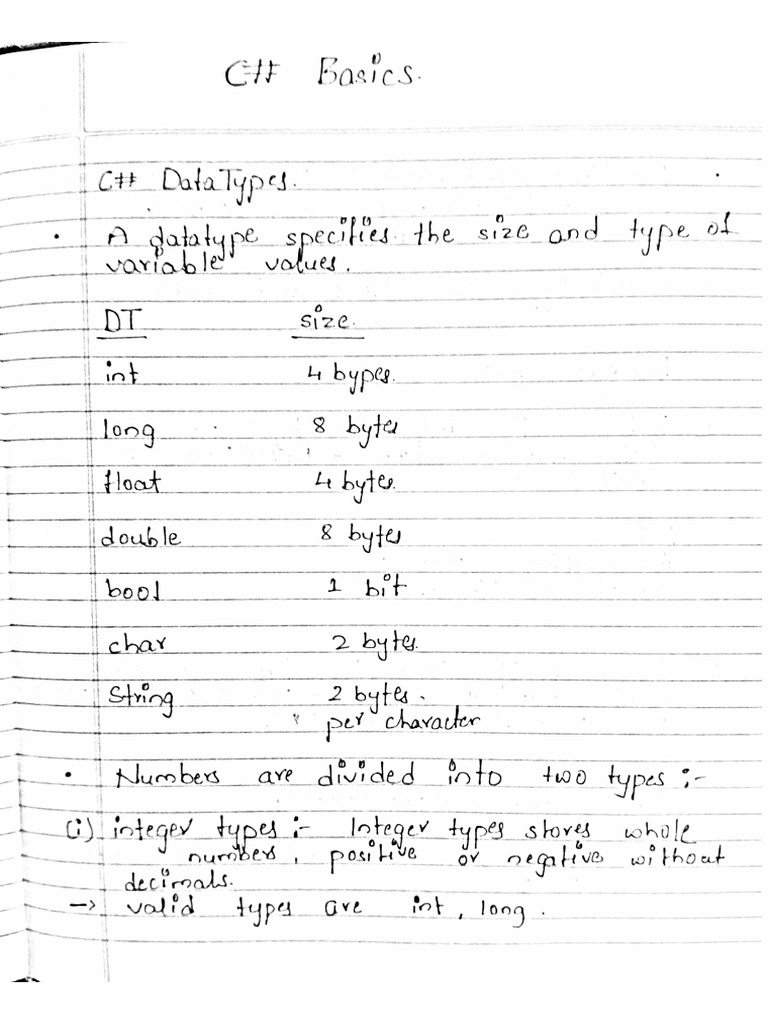 C# Basics.
C# DataTypes.
· A datatype specifies the size and type of
variable values.
DT size
int 4 bypes.
long 8 bytes
float 4 bytes.
double 8 bytes
bool 1 bit
char 2 bytes.
String 2 bytes.
per character
· Numbers are divided into two types :-
(i) integer types :- Integer types stores whole
numbers, positive or negative without
decimals.
-> valid types are int, long.